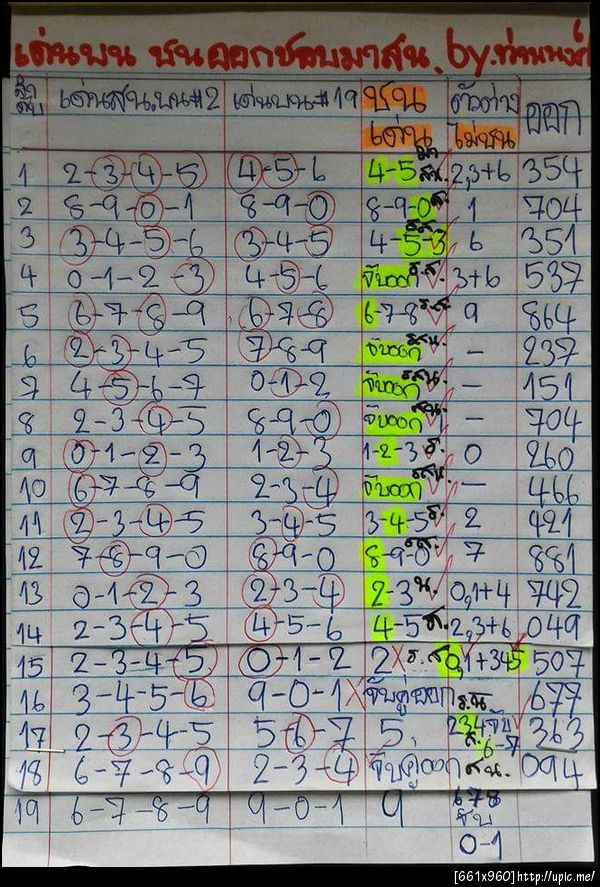 เด่นบน ชนออกชอบมาสน. by.ท่านนงค์
ลำดับ เด่นสน.บน#2 เด่นบน#19 ชนเด่น ตัวต่างไม่ชน ออก
1 2-3-4-5 4-5-6 4-5 สน. 2,3+6 354
2 8-9-0-1 8-9-0 8-9-0 ส. 1 704
3 3-4-5-6 3-4-5 4-5-3 6 351
4 0-1-2-3 4-5-6 จับออก ร.ส. 3+6 537
5 6-7-8-9 6-7-8 6-7-8 ร.ส 9 864
6 2-3-4-5 7-8-9 จับออก รสน. - 237
7 4-5-6-7 0-1-2 จับออก รสน. - 151
8 2-3-4-5 8-9-0 จับออก - 704
9 0-1-2-3 1-2-3 1-2-3 ร. 0 260
10 6-7-8-9 2-3-4 จับออก รสน. - 466
11 2-3-4-5 3-4-5 3-4-5 ร. 2 421
12 7-8-9-0 8-9-0 8-9-0 รส. 7 881
13 0-1-2-3 2-3-4 2-3 น. 0,1+4 742
14 2-3-4-5 4-5-6 4-5 ส. 2,3+6 049
15 2-3-4-5 0-1-2 2 ร.ส 0,1+345 507
16 3-4-5-6 9-0-1 จับคู่ออก ร.น 677
17 2-3-4-5 5-6-7 5. 234จับ ส. 6-7 363
18 6-7-8-9 2-3-4 จับคู่ออก สน. 094
19 6-7-8-9 9-0-1 9 678 จับ 0-1
[661x960]http://upic.me/